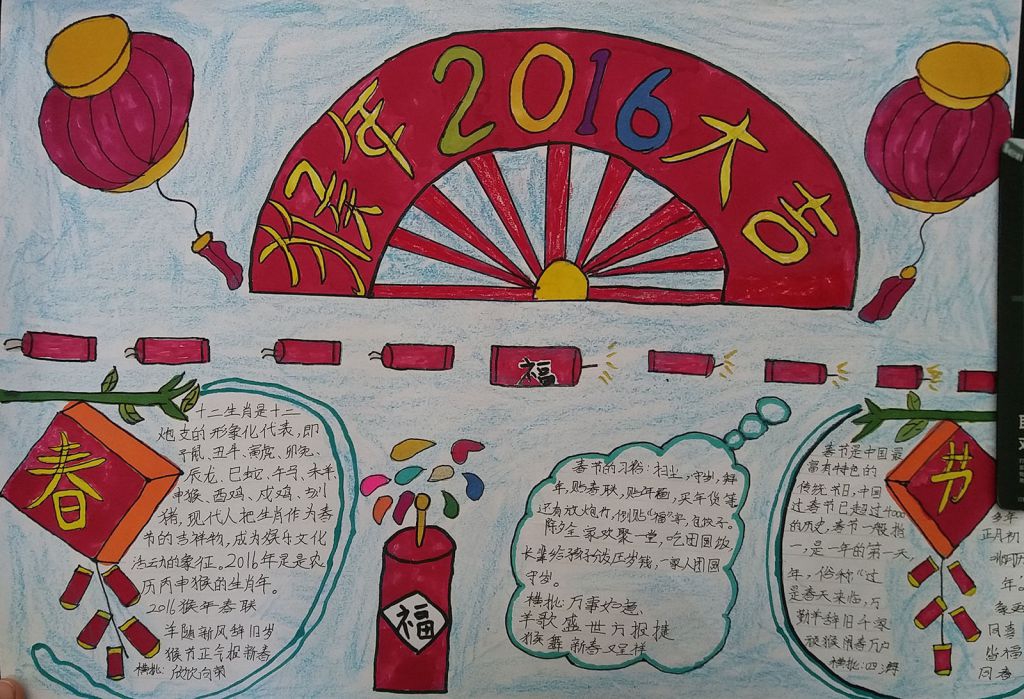 猴年2016大吉
福
春
十二生肖是十二
支的形象化代表,即
子鼠、丑牛、寅虎、卯兔、
辰龙、巳蛇、午马、未羊、
申猴、酉鸡、戌鸡、
猪,现代人把生肖作为春
节的吉祥物,成为娱乐文化
活动的象征。2016年是农
历丙申猴的生肖年。
2016猴年春联
羊随新风辞旧岁
猴节正气报新春
横批:欣欣向荣
福
春节的习俗:扫尘,守岁,拜
年,贴春联,贴年画,买年货等
还有放炮竹,倒贴“福”字,包饺子。
除夕全家欢聚一堂,吃团圆饭
长辈给孩子饭压岁钱,一家人团圆
守岁。
横批:万事如意
羊歌盛世方报捷
猴舞新春又呈祥
节
春节是中国最
富有特色的
传统节日,中国
过春节已超过4000
的历史,春节一般指
一,是一年的第一天,
年,俗称“过
是春天来临,万
勤羊辞旧千家
被猴闹春万户
横批:四海
正月初
年。